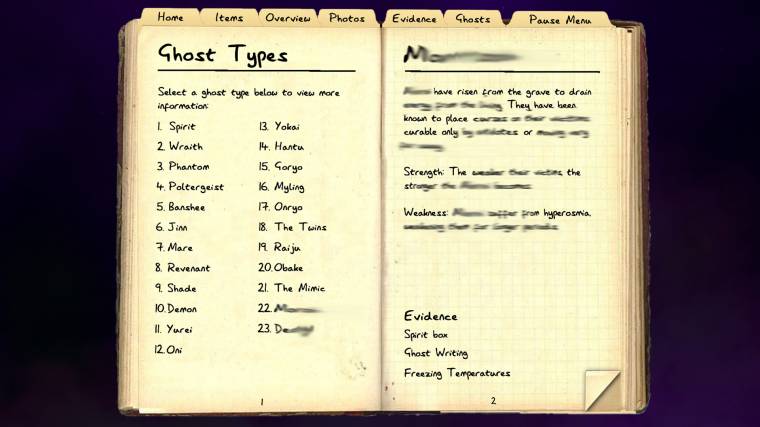 Home Items Overview Photos Evidence Ghosts Pause Menu
Ghost Types
Select a ghost type below to view more
information:
1. Spirit
2. Wraith
3. Phantom
4. Poltergeist
5. Banshee
6. Jinn
7. Mare
8. Revenant
9. Shade
10. Demon
11. Yurei
12. Oni
13. Yokai
14. Hantu
15. Goryo
16. Myling
17. Onryo
18. The Twins
19. Raiju
20. Obake
21. The Mimic
22.
23.
1
have risen from the grave to drain
They have been
known to place
curable only or
Strength: The the
Weakness: from hyperosmia,
Evidence
Spirit box
Ghost Writing
Freezing Temperatures
2